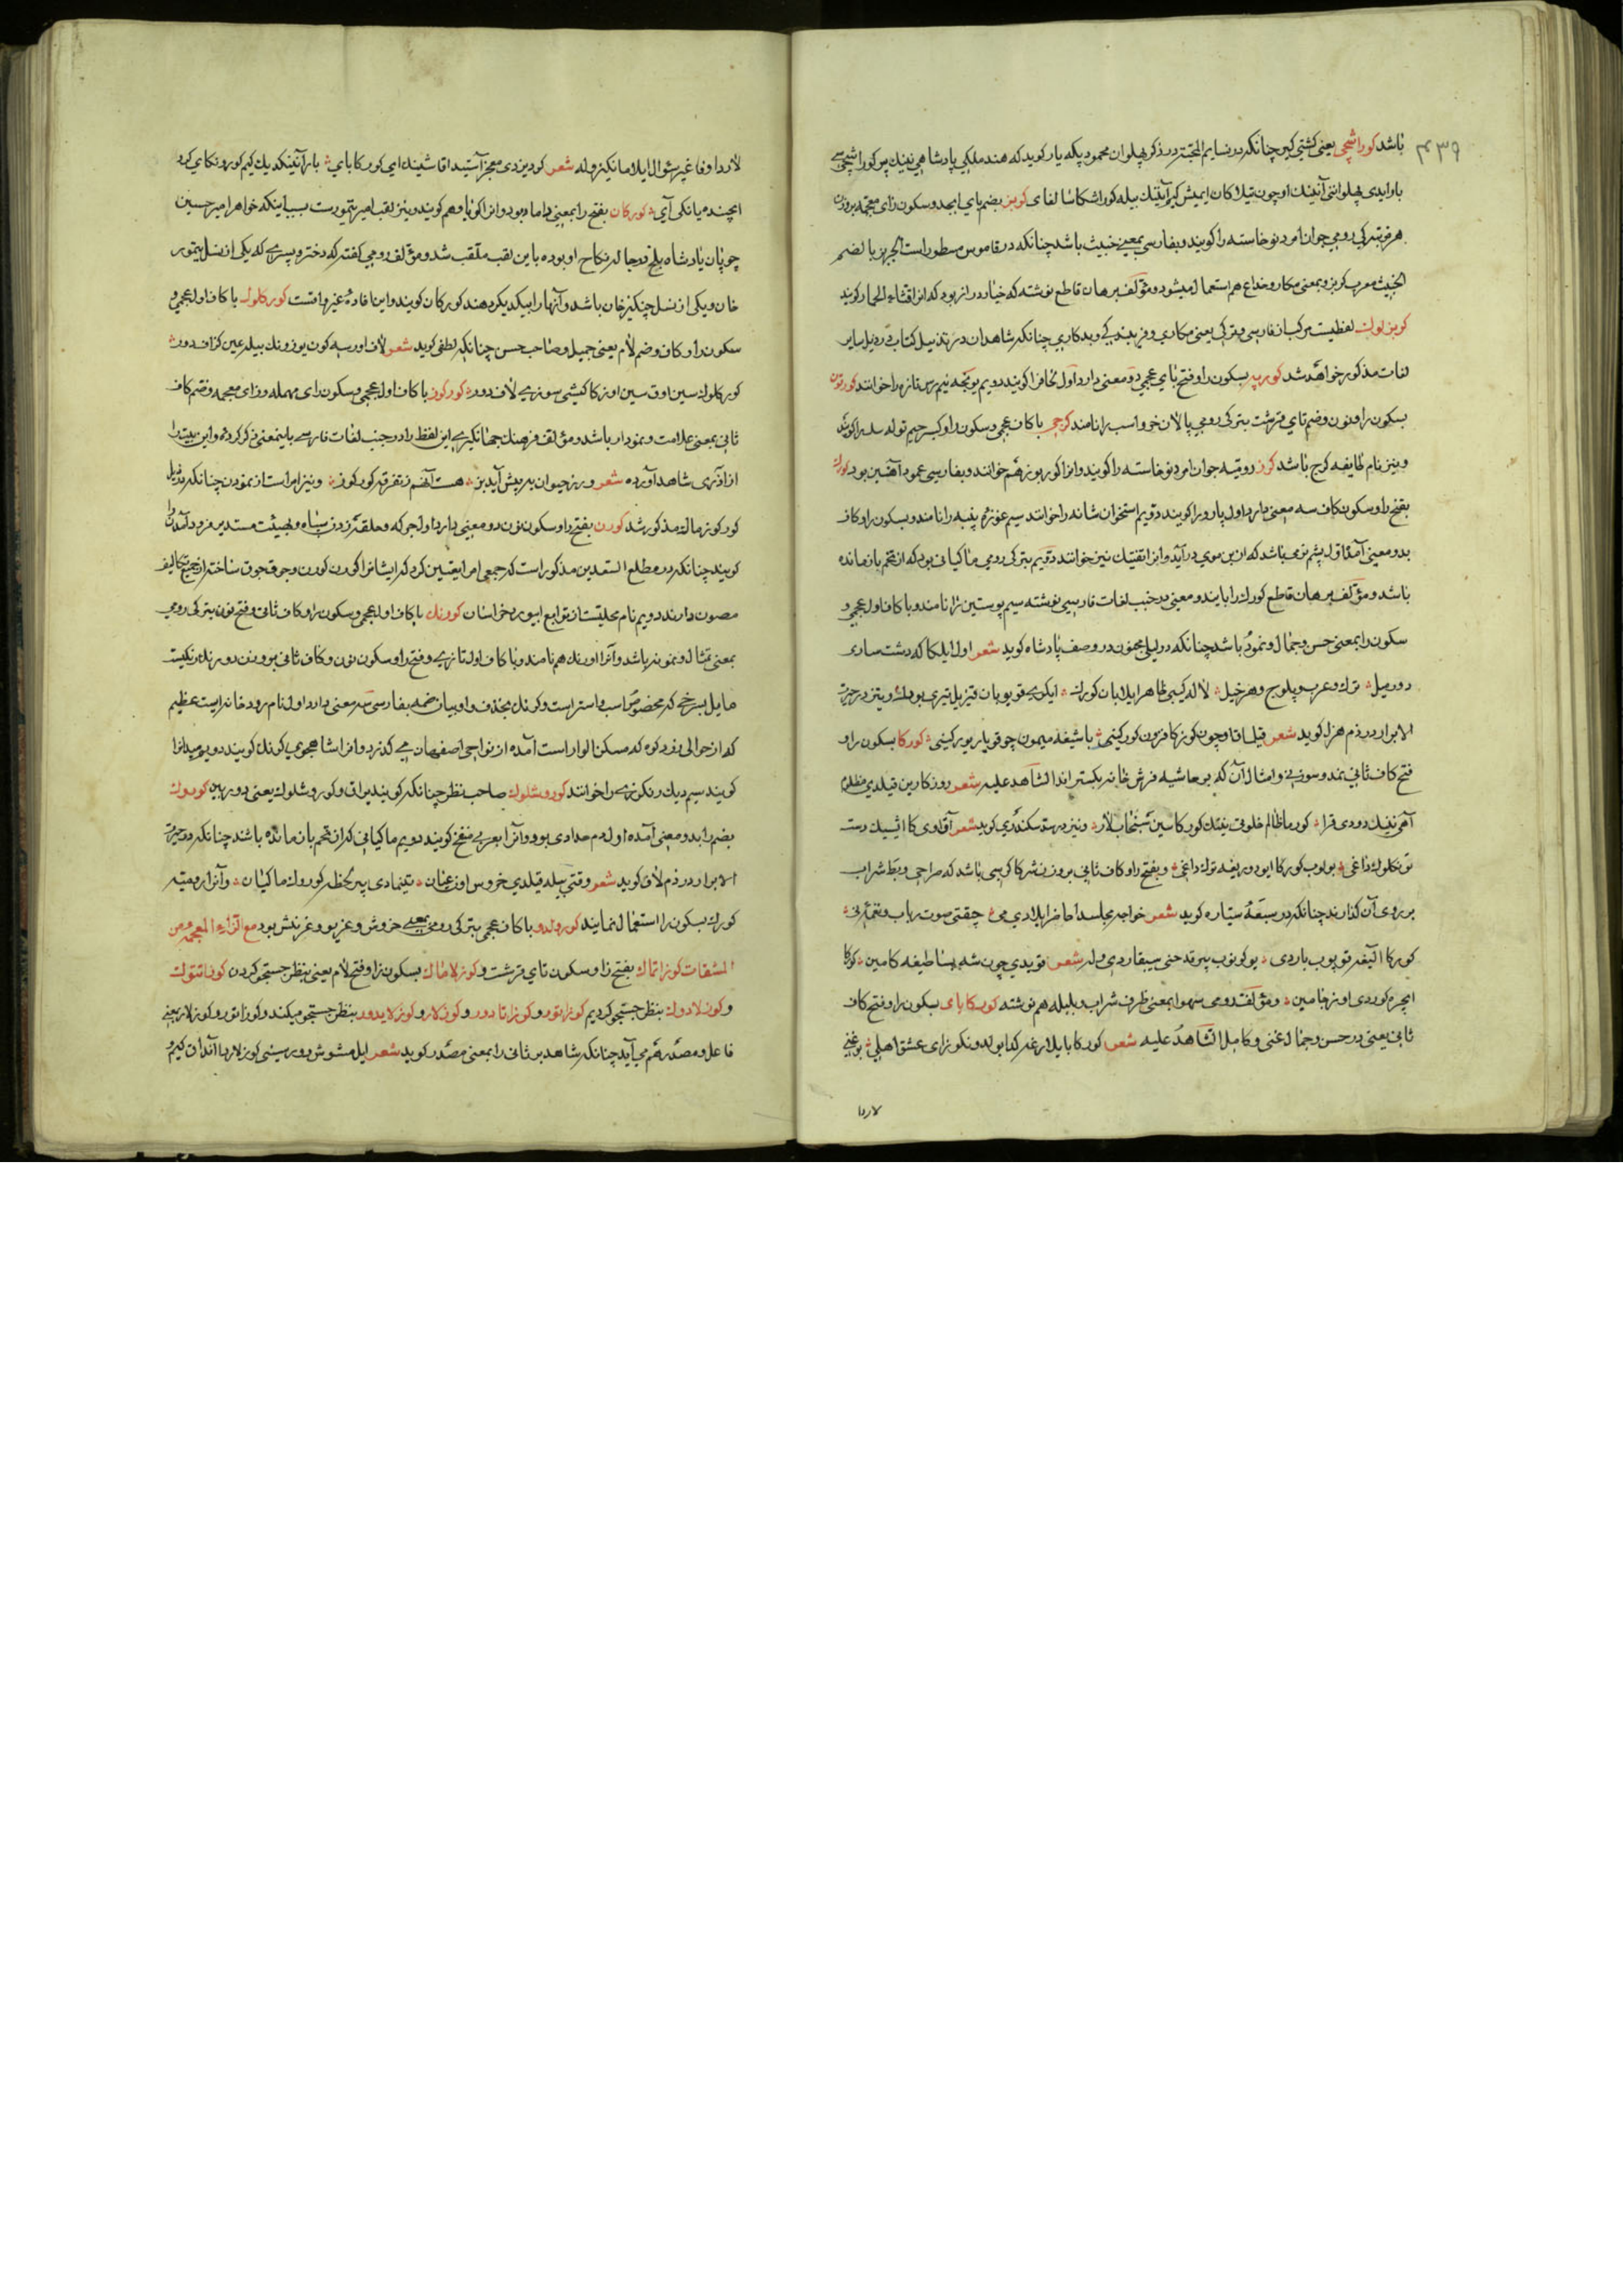 ۴۳۹
باشد کوراشچی یعنی کشتی گیر چنانکه در نسایم المحبة در ذکر پهلوان محمود پکه یار کوید که هند ملکی پادشاهی نینک بیر کوراشچی سی
بار ایدی پهلوانینی آنینک اوچون تیلاکان ایمیش کیم آنینک بیله کوراشکای کوبز بضم بای ابجد و سکون زای معجمه بر وزن
هرمز بترکی رومی جوان امرد نوخاسته را کویند و بفارسی بمعنی خبیث باشد چنانکه در قاموس مسطور است الجربز بالضم
الخبیث معرب کربز و بمعنی مکار و خداع هم استعمال میشود و مؤلف برهان قاطع نوشته که خیار دراز بود که انرا قثاء الحمار کویند
کربزلوک لفظیست مرکب از فارسی و ترکی یعنی مکاری و فریبندگی و بدکاری چنانکه شاهد آن در تذییل کتاب در ذیل سایر
لغات مذکور خواهد شد کورپه بسکون را و فتح بای عجمی دو معنی دارد اول لحاف را کویند دویم یونجه نیم رس تازه را خوانند کورتون
بسکون را و نون و ضم تای قرشت بترکی رومی پالان خر و اسب را نامند کرجی با کاف عجمی و سکون را و کسر جیم توله سک را کویند
و نیز نام طایفه کرج باشد کرز رومیه جوان امرد نوخاسته را کویند و انرا کوربوز هم خوانند و بفارسی عمود آهنین بود کورک
بفتح را و سکون کاف سه معنی دارد اول پارو را کویند دویم استخوان شانه را خوانند سیم غوزه پنبه را نامند و بسکون را و کاف
بدو معنی آمده اول پشم نرمی باشد که از بن موی در آید و انرا تفتیک نیز خوانند دویم بترکی رومی ماکیانی بود که از تخم باز مانده
باشد و مؤلف برهان قاطع کورک را با ین دو معنی در جنب لغات فارسی نوشته سیم پوستین را نامند و با کاف اول عجمی و
سکون را بمعنی حسن و جمال و نمود باشد چنانکه در لیلی مجنون در وصف پادشاه کوید شعر اول ایلکا که دشت ساری
دور میل ترک و عرب و بلوج و هر خیل لاله کیبی ظاهر ایلابان کورک ایکری قویوبان قیزیل تیری بورک و نیز در حیرة
الابرار در ذم هزل کوید شعر قیلسا قاوچون کوزکا فزون کورکینی باشیغه میمون چو قویار بورکینی کورکا بسکون را و
فتح کاف ثانی نمد و سوزنی و امثال آن که بر حاشیه فرش خانه بکسترانند الشاهد علیه شعر روزکارین قیلدی مظلم
آهی نینک دودی قرا کورما ظالم خلوتی نینک کورکاسین سنجاب لار و نیز در سد سکندری کوید شعر آقاوی کا ائییک دسته
تونکلوک داغی بولوب کورکا ایو دوریغه توک داغی و بفتح را و کاف ثانی بر وزن شرکا کرسی باشد که صراحی و بط شراب
بر روی آن کذارند چنانکه در سبعه سیاره کوید شعر خواجه مجلسدا حاضر ایلادی می چقتی صوت رباب و نغمه نی
کورکا آلیفه قویوب باردی یوکونوب بیر قدحنی سیپقاردی وله شعر قویدی چون شه بساطیغه کامین کورکا
ایچره کوردی اوز جامین و مؤلف رومی سهوا بمعنی ظرف شراب و بلبله هم نوشته کورکابای بسکون را و فتح کاف
ثانی یعنی در حسن و جمال غنی و کامل الشاهد علیه شعر کورکابایلارغه کدا بولدونک کوزای عشق اهلی یوغنی
لاردا
لاردا وفا غیر سؤال ایلامانکیز وله شعر کوردیزدی معجز آستیدا قاشینک ای کورکابای بار آنینکدیک کیم کورونکای کرد
ایچنده یانکی آی کورکان بفتح را بمعنی داماد بود و انرا کویاو هم کویند و نیز لقب امیر تیمور است بسبب اینکه خواهر امیر حسین
چوپان پادشاه بلخ در حاله نکاح او بوده باین لقب ملقب شد و مؤلف رومی کفته که دختر و پسری که یکی از نسل تیمور
خان و یکی از نسل چنکیز خان باشد و آنها را بیکدیکر دهند کورکان کویند و این افاده غیر واقعست کورکلوک با کاف اول عجمی و
سکون را و کاف و ضم لام یعنی جمیل و صاحب حسن چنانکه لطفی کوید شعر لاف اورسه کون یوزونک بیله عین کزاف دور
کورکلوک سین اوق سین اوزکا کیشی سوزی لاف دور کورکوز با کاف اول عجمی و سکون رای مهمله و زای معجمه و ضم کاف
ثانی بمعنی علامت و نمودار باشد و مؤلف فرهنک جهانکیری این لفظ را در جنب لغات فارسی باینمعنی ذکر کرده و این بیت را
از آذری شاهد آورده شعر ور ز حیوان بپریش آید بز هست آنهم ز تفرقه کورکوز و نیز امر است از نمودن چنانکه در ذیل
کورکوزماک مذکور شد کورن بفتح را و سکون نون دو معنی دارد اول جرکه و حلقه زدن سپاه و بهیئت مستدیر فرود آمدن را
کویند چنانکه در مطلع السعدین مذکور است که جمعی امرا تعیین کرد که ایشانرا کورن کورن و جوق جوق ساخته از جمیع تکالیف
مصون دارند دویم نام محلیست از توابع ابیورد خراسان کورنک با کاف اول عجمی و سکون را و کاف ثانی و فتح نون بترکی رومی
بمعنی تمثال و نمونه باشد و آنرا اورنک هم نامند و با کاف اول تازی و فتح را و سکون نون و کاف ثانی بر وزن دورنک رنکیست
مایل بسرخی که مخصوص اسب و استر است و کرنک بحذف واو بیان ضمه بفارسی سه معنی دارد اول نام رودخانه ایست عظیم
که از حوالی زرد کوه که مسکن الوار است آمده از نواحی اصفهان می کذرد و انرا شاهجوی کرنک کویند دویم میدانرا
کویند سیم دیک رنکرزی را خوانند کوروشلوک صاحب نظر چنانکه کویند یراق کوروشلوک یعنی دوربین کوروک
بضم را بدو معنی آمده اول دم حدادی بود و آنرا بعربی منفخ کویند دویم ماکیانی که از تخم باز مانده باشد چنانکه در حیرة
الابرار در ذم لاف کوید شعر وقتی بیله قیلدی خروس اوز عیان تینمادی بیر لحظه کوروک ماکیان و آنرا رومیه
کورک بسکون را استعمال نمایند کورولدو با کاف عجمی بترکی رومی بمعنی خروش و غریو و غرنش بود مع الزاء المعجمه و من
المشقات کوزاتماک بفتح زا و سکون تای قرشت و کوزلاماک بسکون زا و فتح لام یعنی بنظر جستجو کردن کوزاتتوک
و کوزلادوک بنظر جستجو کردیم کوزاتور و کوزاتادور و کوزلار و کوزلایدور بنظر جستجو میکند و کوزاتور و کوزلار بمعنی
فاعل و مصدر هم می آید چنانکه شاهد بر ثانی را بمعنی مصدر کوید شعر ایل مشوش دور سینی کوزلاردا آنداق کیم